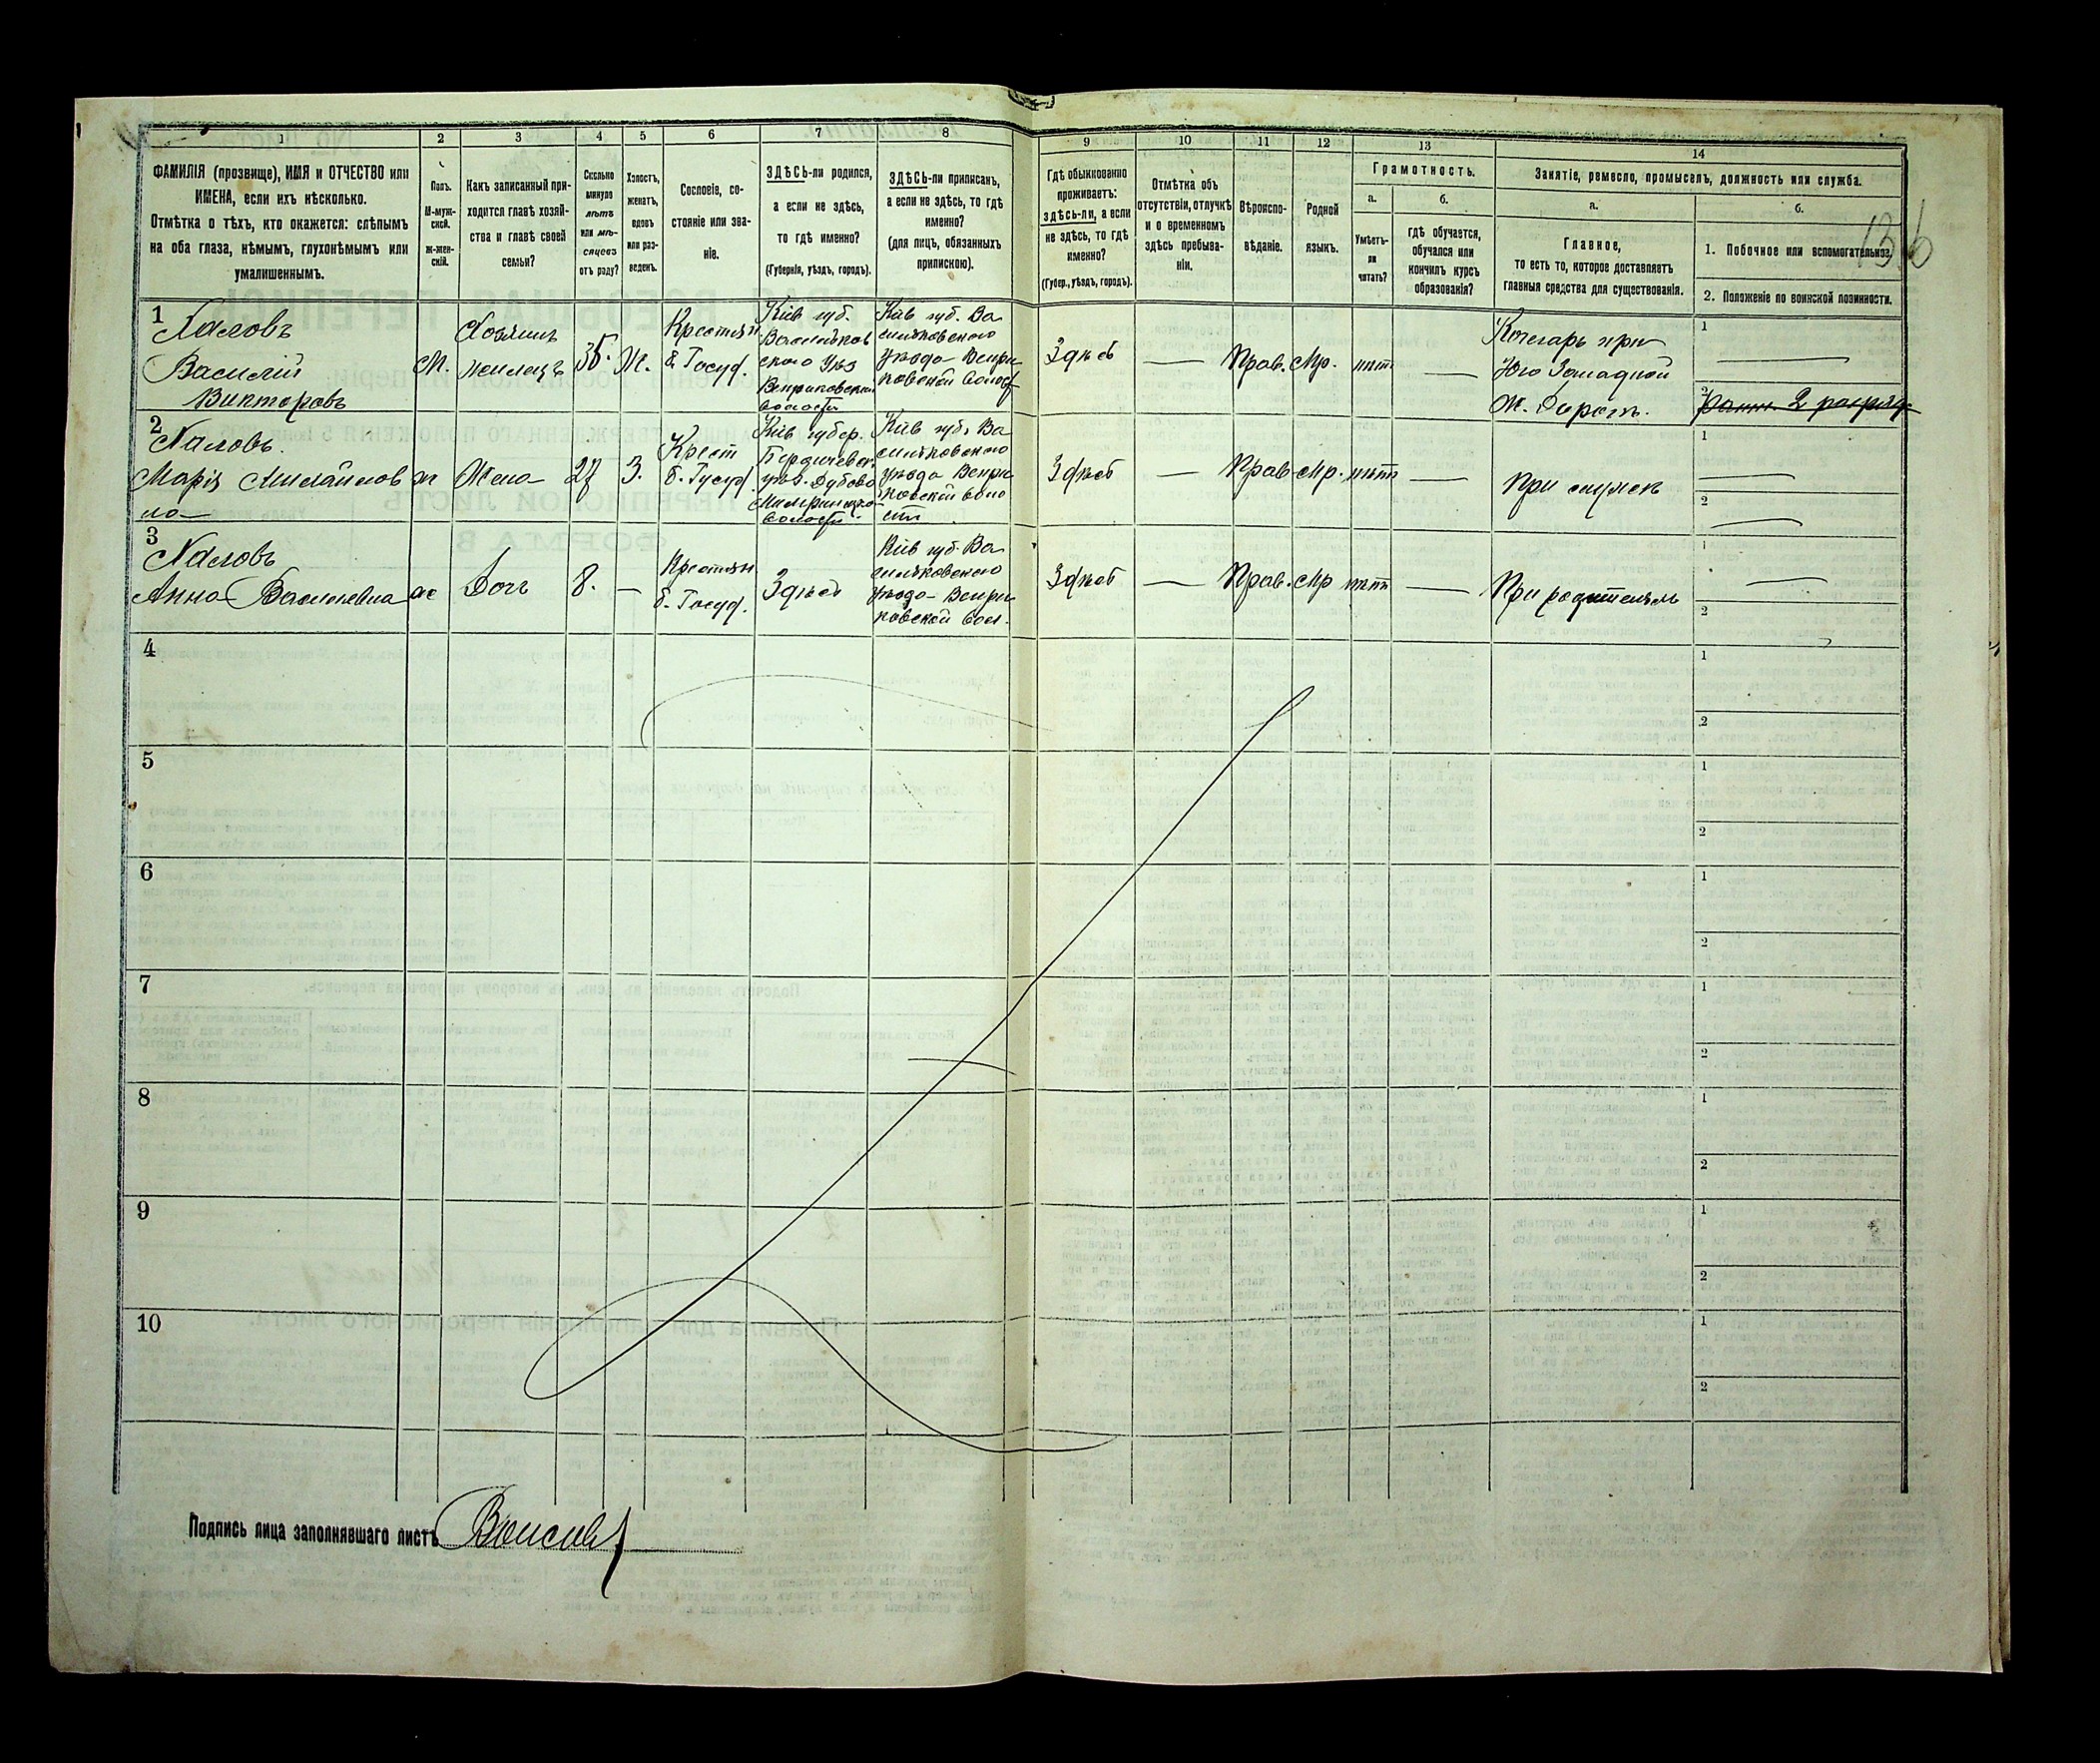 1 2 3 4 5 6 7 8 9 10 11 12 13 14
ФАМИЛІЯ (прозвище), ИМЯ и ОТЧЕСТВО или
ИМЕНА, если ихъ нѣсколько.
Отмѣтка о тѣхъ, кто окажется: слѣпымъ
на оба глаза, нѣмымъ, глухонѣмымъ или
умалишеннымъ.
Полъ.
М-муж-
ской.
ж-жен-
скій.
Какъ записанный при-
ходится главѣ хозяй-
ства и главѣ своей
семьи?
Сколько
минуло
лѣтъ
или мѣ-
сяцевъ
отъ роду?
Холостъ,
женатъ,
вдовъ
или раз-
веденъ.
Сословіе, со-
стояніе или зва-
ніе.
ЗДѢСЬ-ли родился,
а если не здѣсь,
то гдѣ именно?
(Губернія, уѣздъ, городъ).
ЗДѢСЬ-ли приписанъ,
а если не здѣсь, то гдѣ
именно?
(для лицъ, обязанныхъ
припискою).
Гдѣ обыкновенно
проживаетъ:
здѣсь-ли, а если
не здѣсь, то гдѣ
именно?
(Губер., уѣздъ, городъ).
Отмѣтка объ
отсутствіи, отлучкѣ
и о временномъ
здѣсь пребыва-
ніи.
Вѣроиспо-
вѣданіе.
Родной
языкъ.
Грамотность.
а.
Умѣетъ-
ли
читать?
б.
гдѣ обучается,
обучался или
кончилъ курсъ
образованія?
Занятіе, ремесло, промыселъ, должность или служба.
а.
Главное,
то есть то, которое доставляетъ
главныя средства для существованія.
б.
1. Побочное или вспомогательное.
2. Положеніе по воинской повинности.
136
1
Василій
Викторовъ
М.
Хозяинъ
35.
Ж.
Крестьян.
б. Госуд.
Кіев губ.
Васильков
скаго Уѣз
Веприковской
Волости
Кіев губ. Ва
сильковскаго
уѣзда Вепри
ковской Волост
Здѣсь
—
Прав.
Мр.
нѣтъ
—
Кочегаръ при
Юго Западной
Ж. Дорогѣ.
1
—
2 разряд
2
Марія Михайлов
на
ж
Жена
27
З.
Крест
б. Госуд
Кіев губер.
Бердичевск.
уѣз.
Волости
Кіев губ. Ва
сильковскаго
уѣзда Вепри
ковской воло
сти
Здѣсь
—
Прав
Мр.
нѣтъ
—
При мужѣ
1
—
2
—
3
Анна Васильевна
ж
Дочь
8.
—
Крестьян
б. Госуд.
Здѣсь
Кіев губ. Ва
сильковскаго
уѣзда Вепри
ковской вол.
Здѣсь
—
Прав.
Мр
нѣтъ
—
При родителяхъ
1
—
2
4
1
2
5
1
2
6
1
2
7
1
2
8
1
2
9
1
2
10
1
2
Подпись лица заполнявшаго листъ